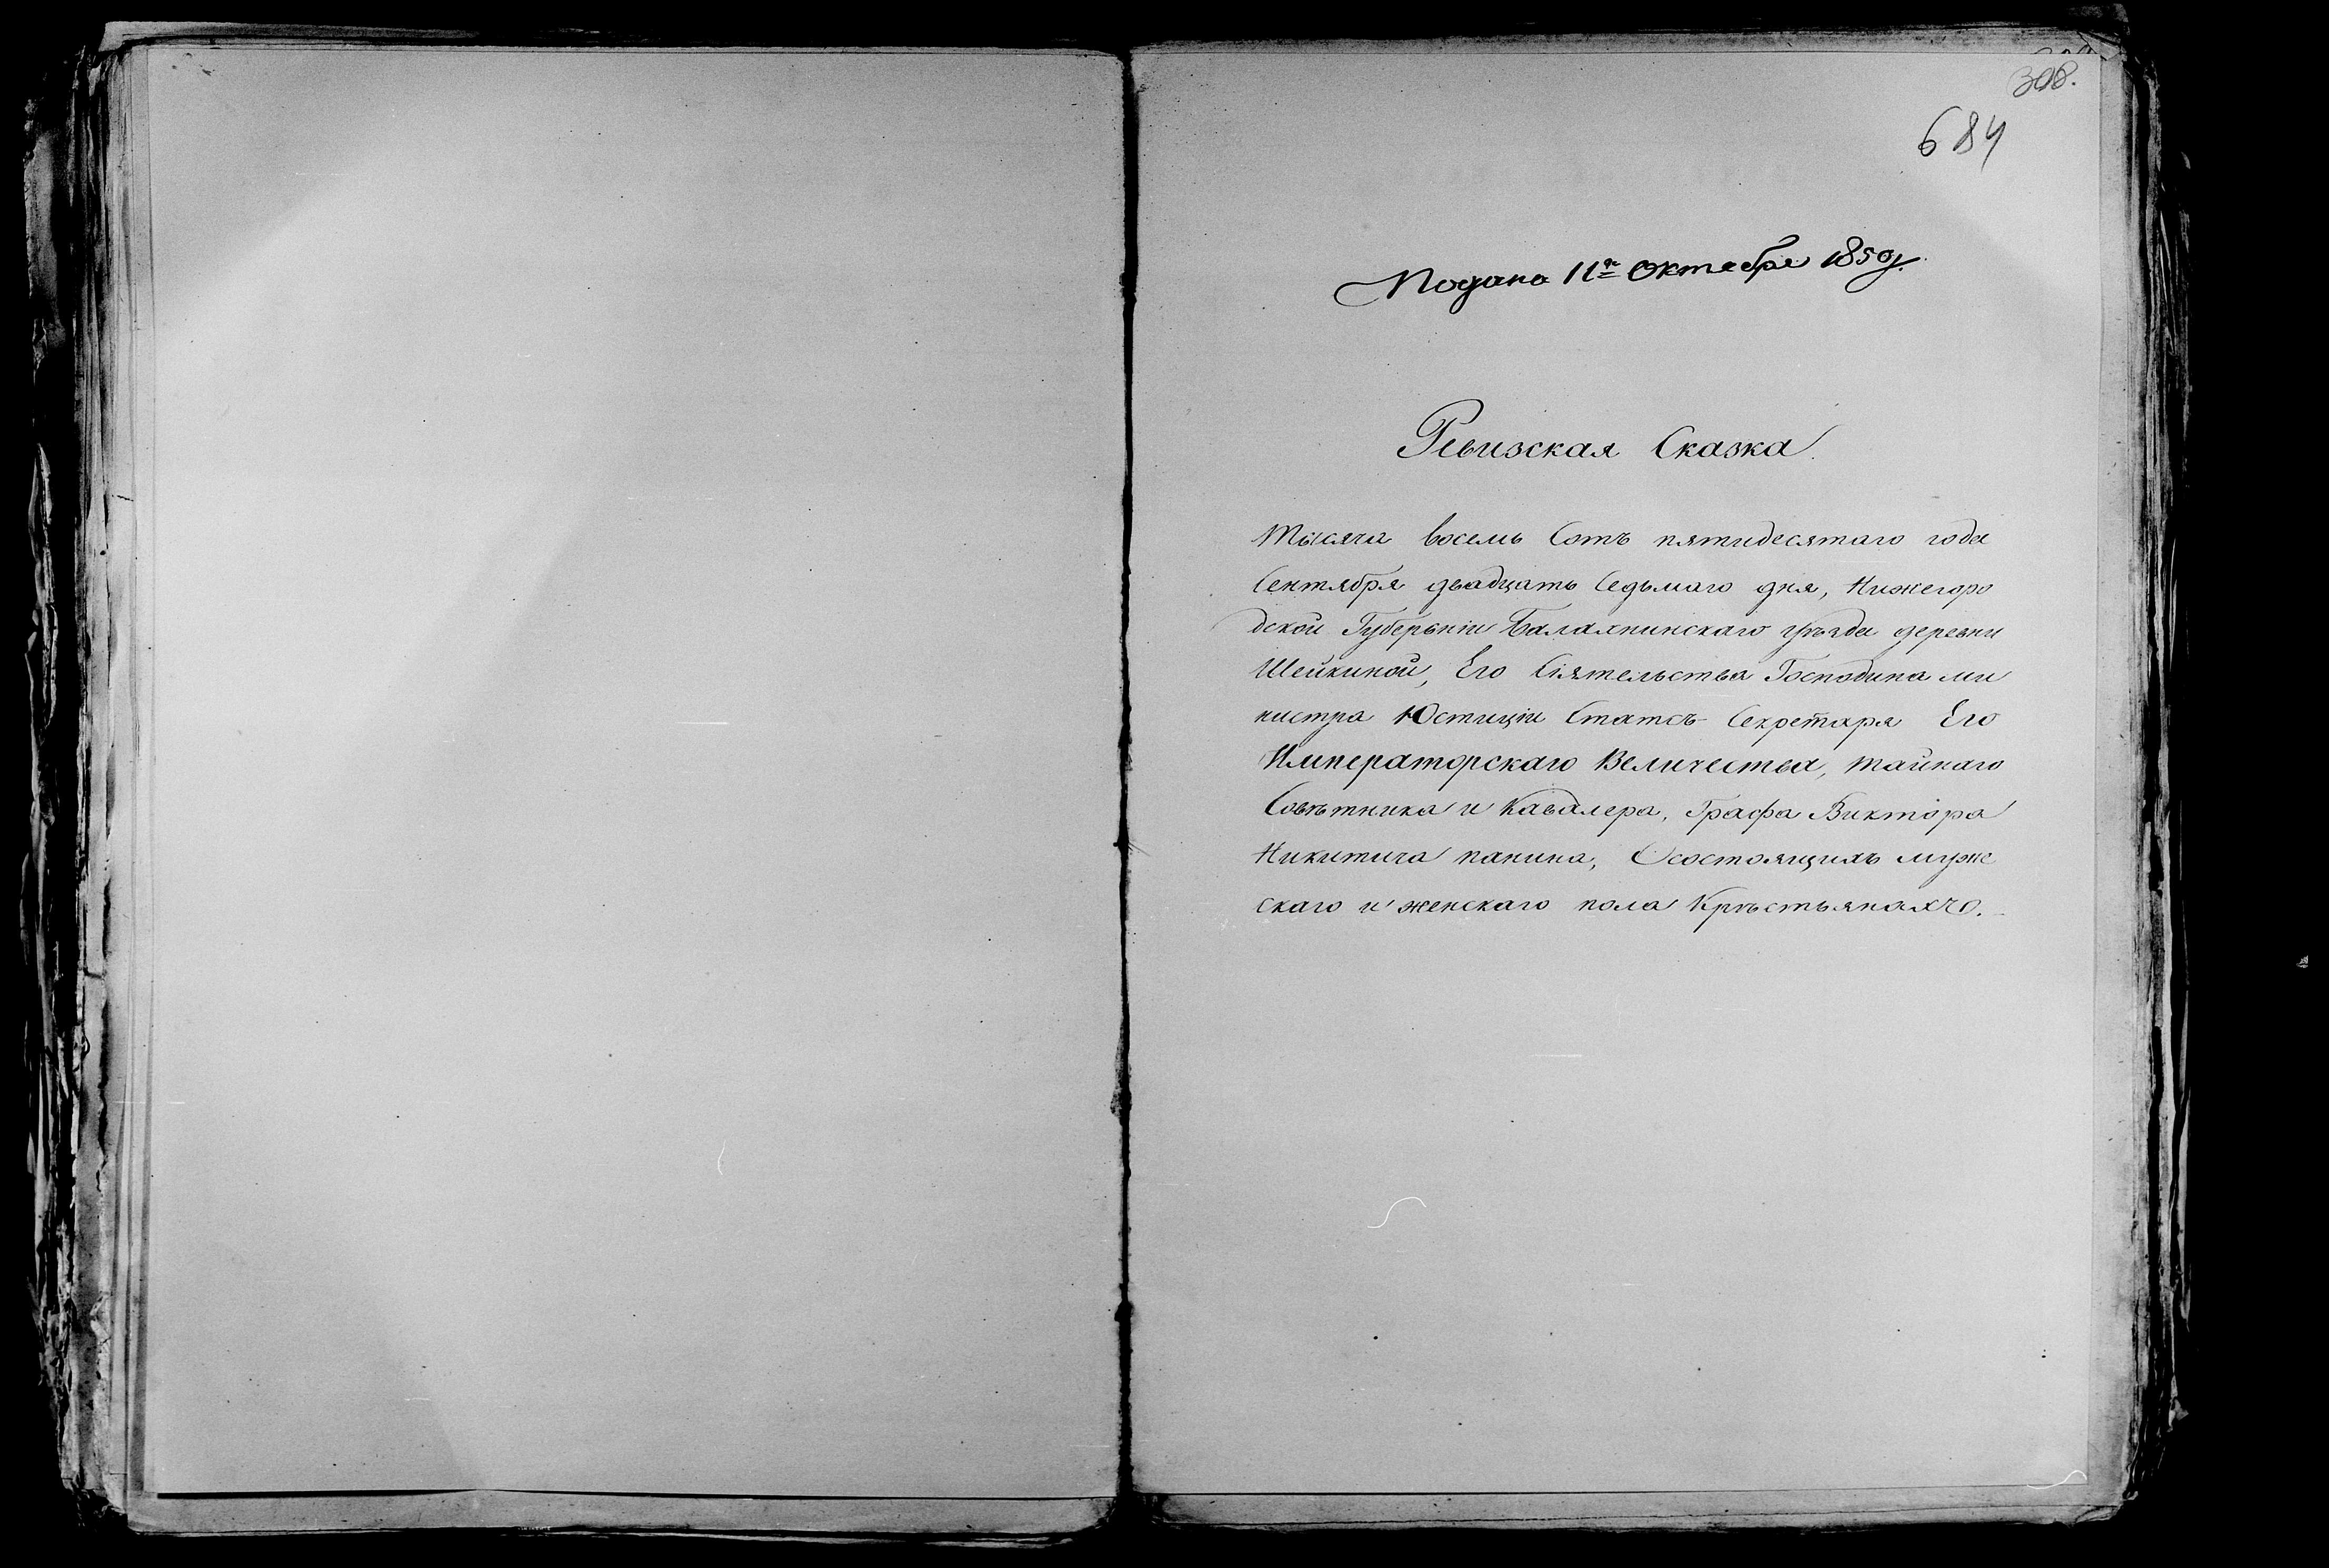 308.
684
Подано 11го Октебре 1850г.
Ревизская Сказка.
Тысяча восемь Сотъ пятидесятаго года
Сентября двадцать Седьмаго дня, Нижегоро
дской Губерьніи Балахнинскаго уѣзда деревни
Шейкиной, Его Сіятельства Господина ми
нистра Юстиціи Статсъ Секретаря Его
Императорскаго Величества, тайнаго
Совѣтника и Кавалера, Графа Виктора
Никитича панина, Осостоящихъ мужс
скаго и женскаго пола Крѣстьянахъ.